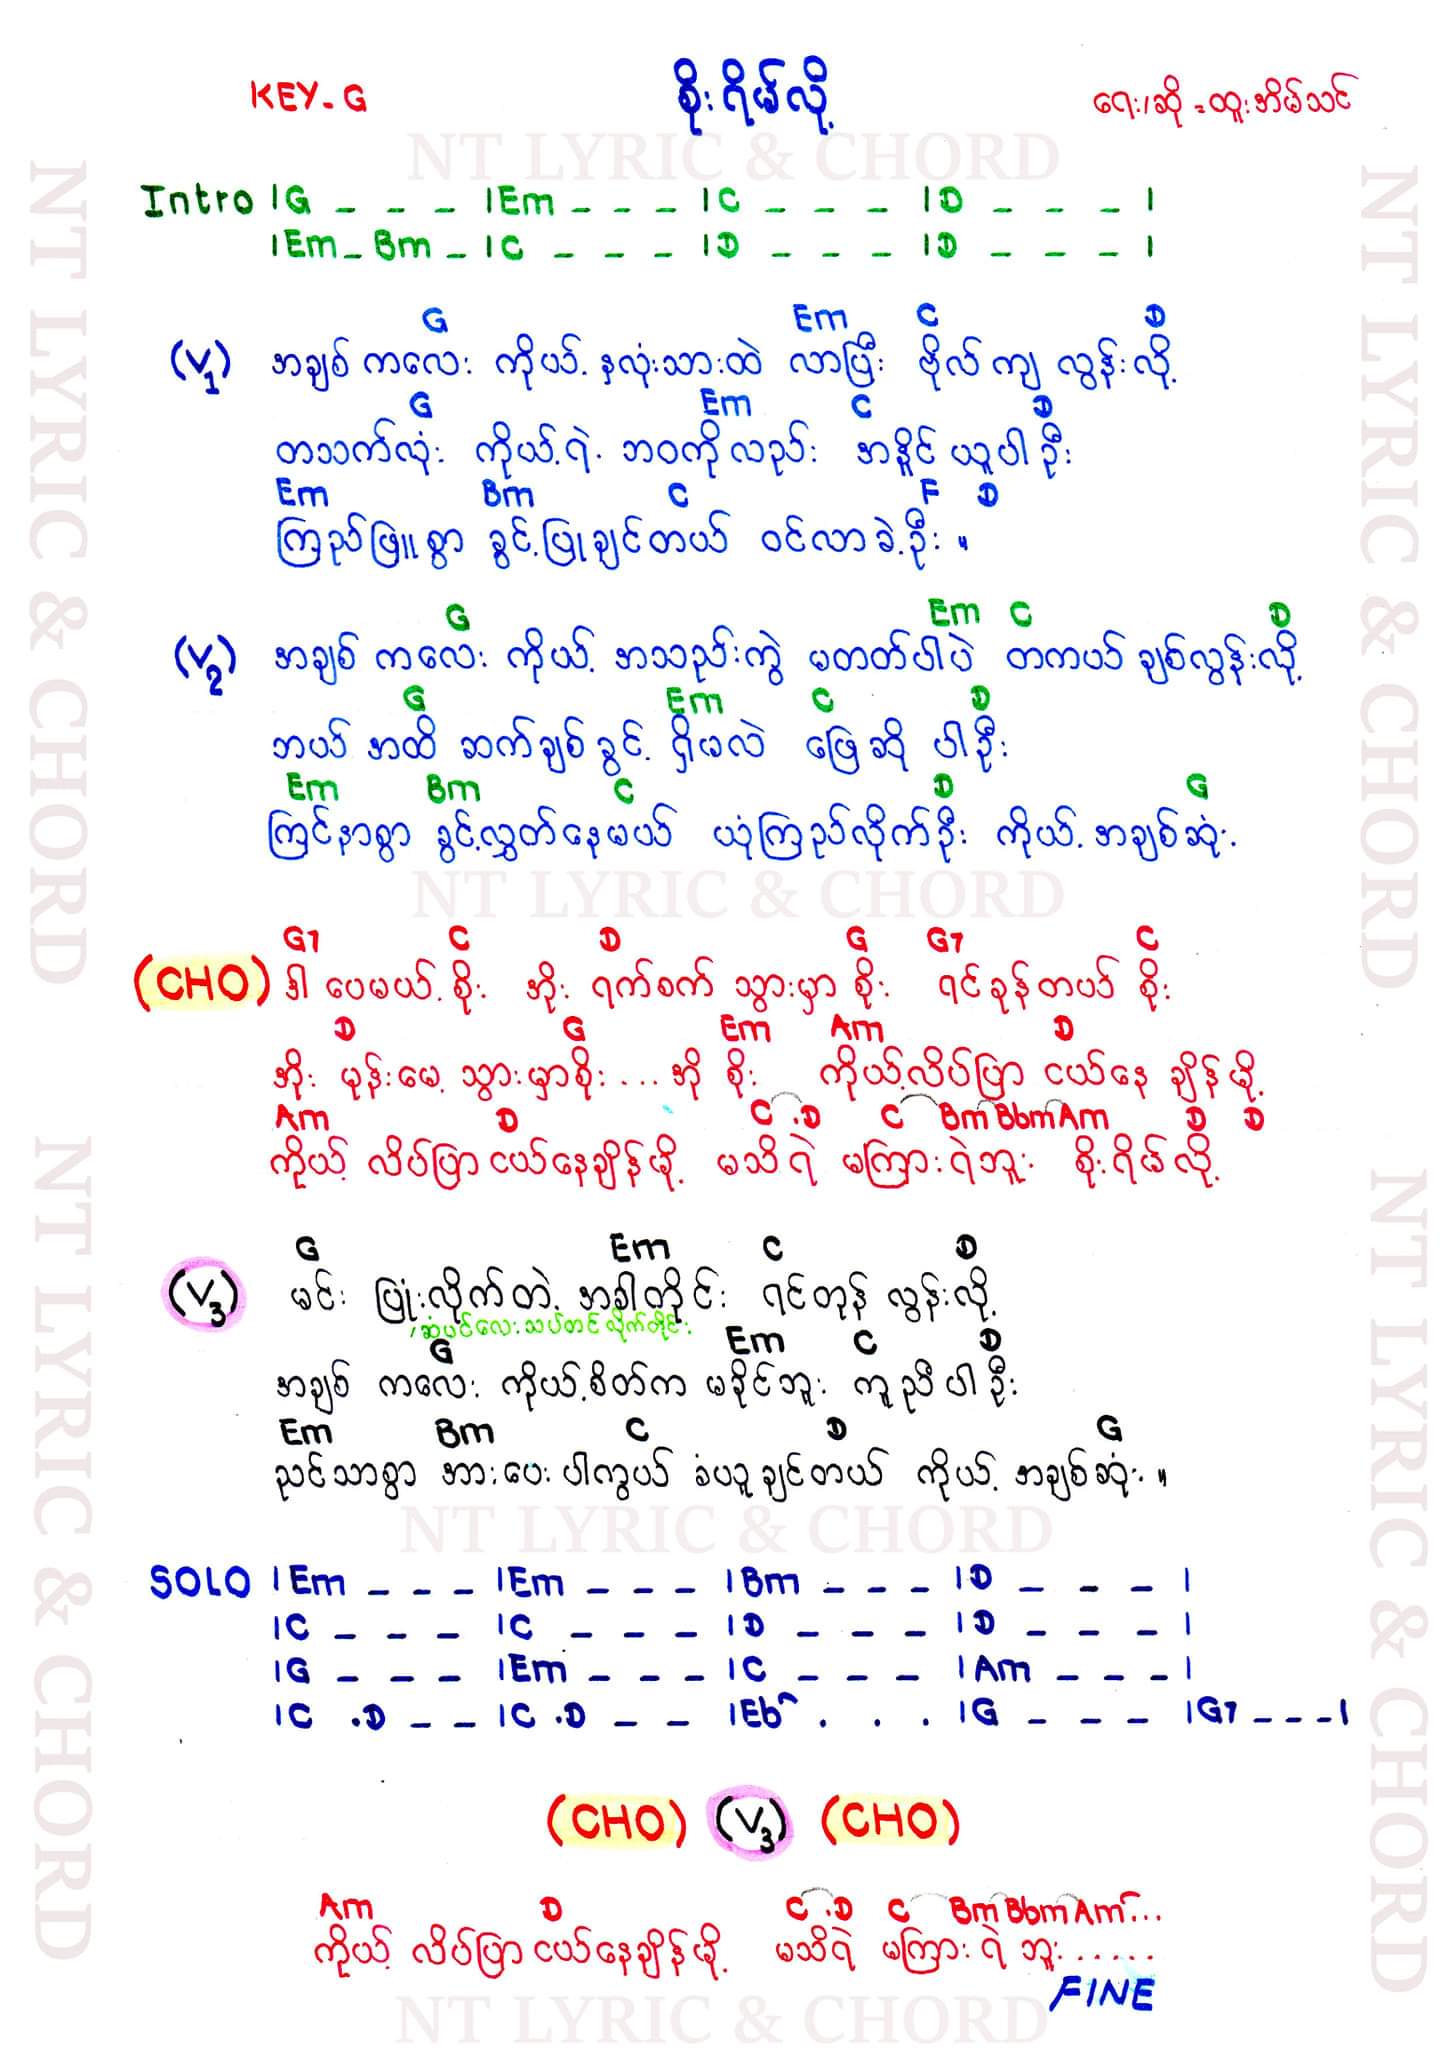 KEY-G စိုးရိမ်လို့ ရေး/ဆို = ထူးအိမ်သင်
NT LYRIC & CHORD
Intro |G _ _ _ |Em _ _ _ |C _ _ _ |D _ _ _ |
|Em _ Bm _ |C _ _ _ |D _ _ _ |D _ _ _ |
G Em C D
(V1) အချစ် ကလေး ကိုယ့် နှလုံးသားထဲ လာပြီး ဗိုလ် ကျ လွန်းလို့
G Em C D
တသက်လုံး ကိုယ့်ရဲ့ ဘဝကိုလည်း အနိူင် ယူပါဦး
Em Bm C F D
ကြည်ဖြူစွာ ခွင့်ပြုချင်တယ် ဝင်လာခဲ့ဦး။
G Em C D
(V2) အချစ် ကလေး ကိုယ့် အသည်းကွဲ မတတ်ပါပဲ တကယ် ချစ်လွန်းလို့
G Em C D
ဘယ် အထိ ဆက်ချစ်ခွင့် ရှိမလဲ ဖြေဆို ပါဦး
Em Bm C D G
ကြင်နာစွာ ခွင့်လွှတ်နေမယ် ယုံကြည်လိုက်ဦး ကိုယ့် အချစ်ဆုံး
NT LYRIC & CHORD
G7 C D G G7 C
(CHO) ဒါ ပေမယ့် စိုး အိုး ရက်စက် သွားမှာ စိုး ရင်ခုန်တယ် စိုး
D G Em Am D
အိုး မုန်းမေ့ သွားမှာစိုး... အို စိုး ကိုယ့်လိပ်ပြာ ငယ်နေ ချိန်မို့
Am D C .D C Bm Bbm Am D D
ကိုယ့် လိပ်ပြာ ငယ်နေချိန်မို့ မသိရဲ မကြားရဲဘူး စိုးရိမ်လို့
G Em C D
(V3) မင်း ပြုံးလိုက်တဲ့ အခါတိုင်း ရင်တုန် လွန်းလို့
/ဆံပင်လေးသပ်တင်လိုက်တိုင်း
G Em C D
အချစ် ကလေး ကိုယ့်စိတ်က မခိုင်ဘူး ကူညီပါဦး
Em Bm C D G
ညင်သာစွာ အားပေးပါကွယ် ခံယူချင်တယ် ကိုယ့် အချစ်ဆုံး။
NT LYRIC & CHORD
SOLO |Em _ _ _ |Em _ _ _ |Bm _ _ _ |D _ _ _ |
|C _ _ _ |C _ _ _ |D _ _ _ |D _ _ _ |
|G _ _ _ |Em _ _ _ |C _ _ _ |Am _ _ _ |
|C .D _ _ |C .D _ _ |Eb^ . . . |G _ _ _ |G7 _ _ _ |
(CHO) (V3) (CHO)
Am D C .D C Bm Bbm Am...
ကိုယ့် လိပ်ပြာ ငယ်နေချိန်မို့ မသိရဲ မကြားရဲ ဘူး.....
FINE
NT LYRIC & CHORD
NT LYRIC & CHORD
NT LYRIC & CHORD
NT LYRIC & CHORD
NT LYRIC & CHORD